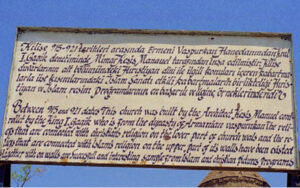 Kilise 915-921 tarihleri arasında Ermeni Vaspurkan Hanedanından Kral
I. Gagik döneminde, Mimar Keşiş Manuel tarafından inşa edilmiştir. Kilise
duvarlarının alt bölümündeki Hıristiyan dini ile ilgili konuları içeren kabartma-
larla üst kısımlarındaki İslam Sanatı etkili kabartmalarla bir
tiyan ve İslam resim programlarının en başarılı örneğidir.
Between 915 and 921 dates This church was built by the Architec Keşiş Manuel con-
by the king I. Gagik who is from the dynasty of Armenians vaspurakan The reli-
that are connected with christians religion on the lower part of and the re-
that are connected with Islams religion on the upper part of its walls have been
with on walls are successful and interesting sample from Islam and christian pictures programs